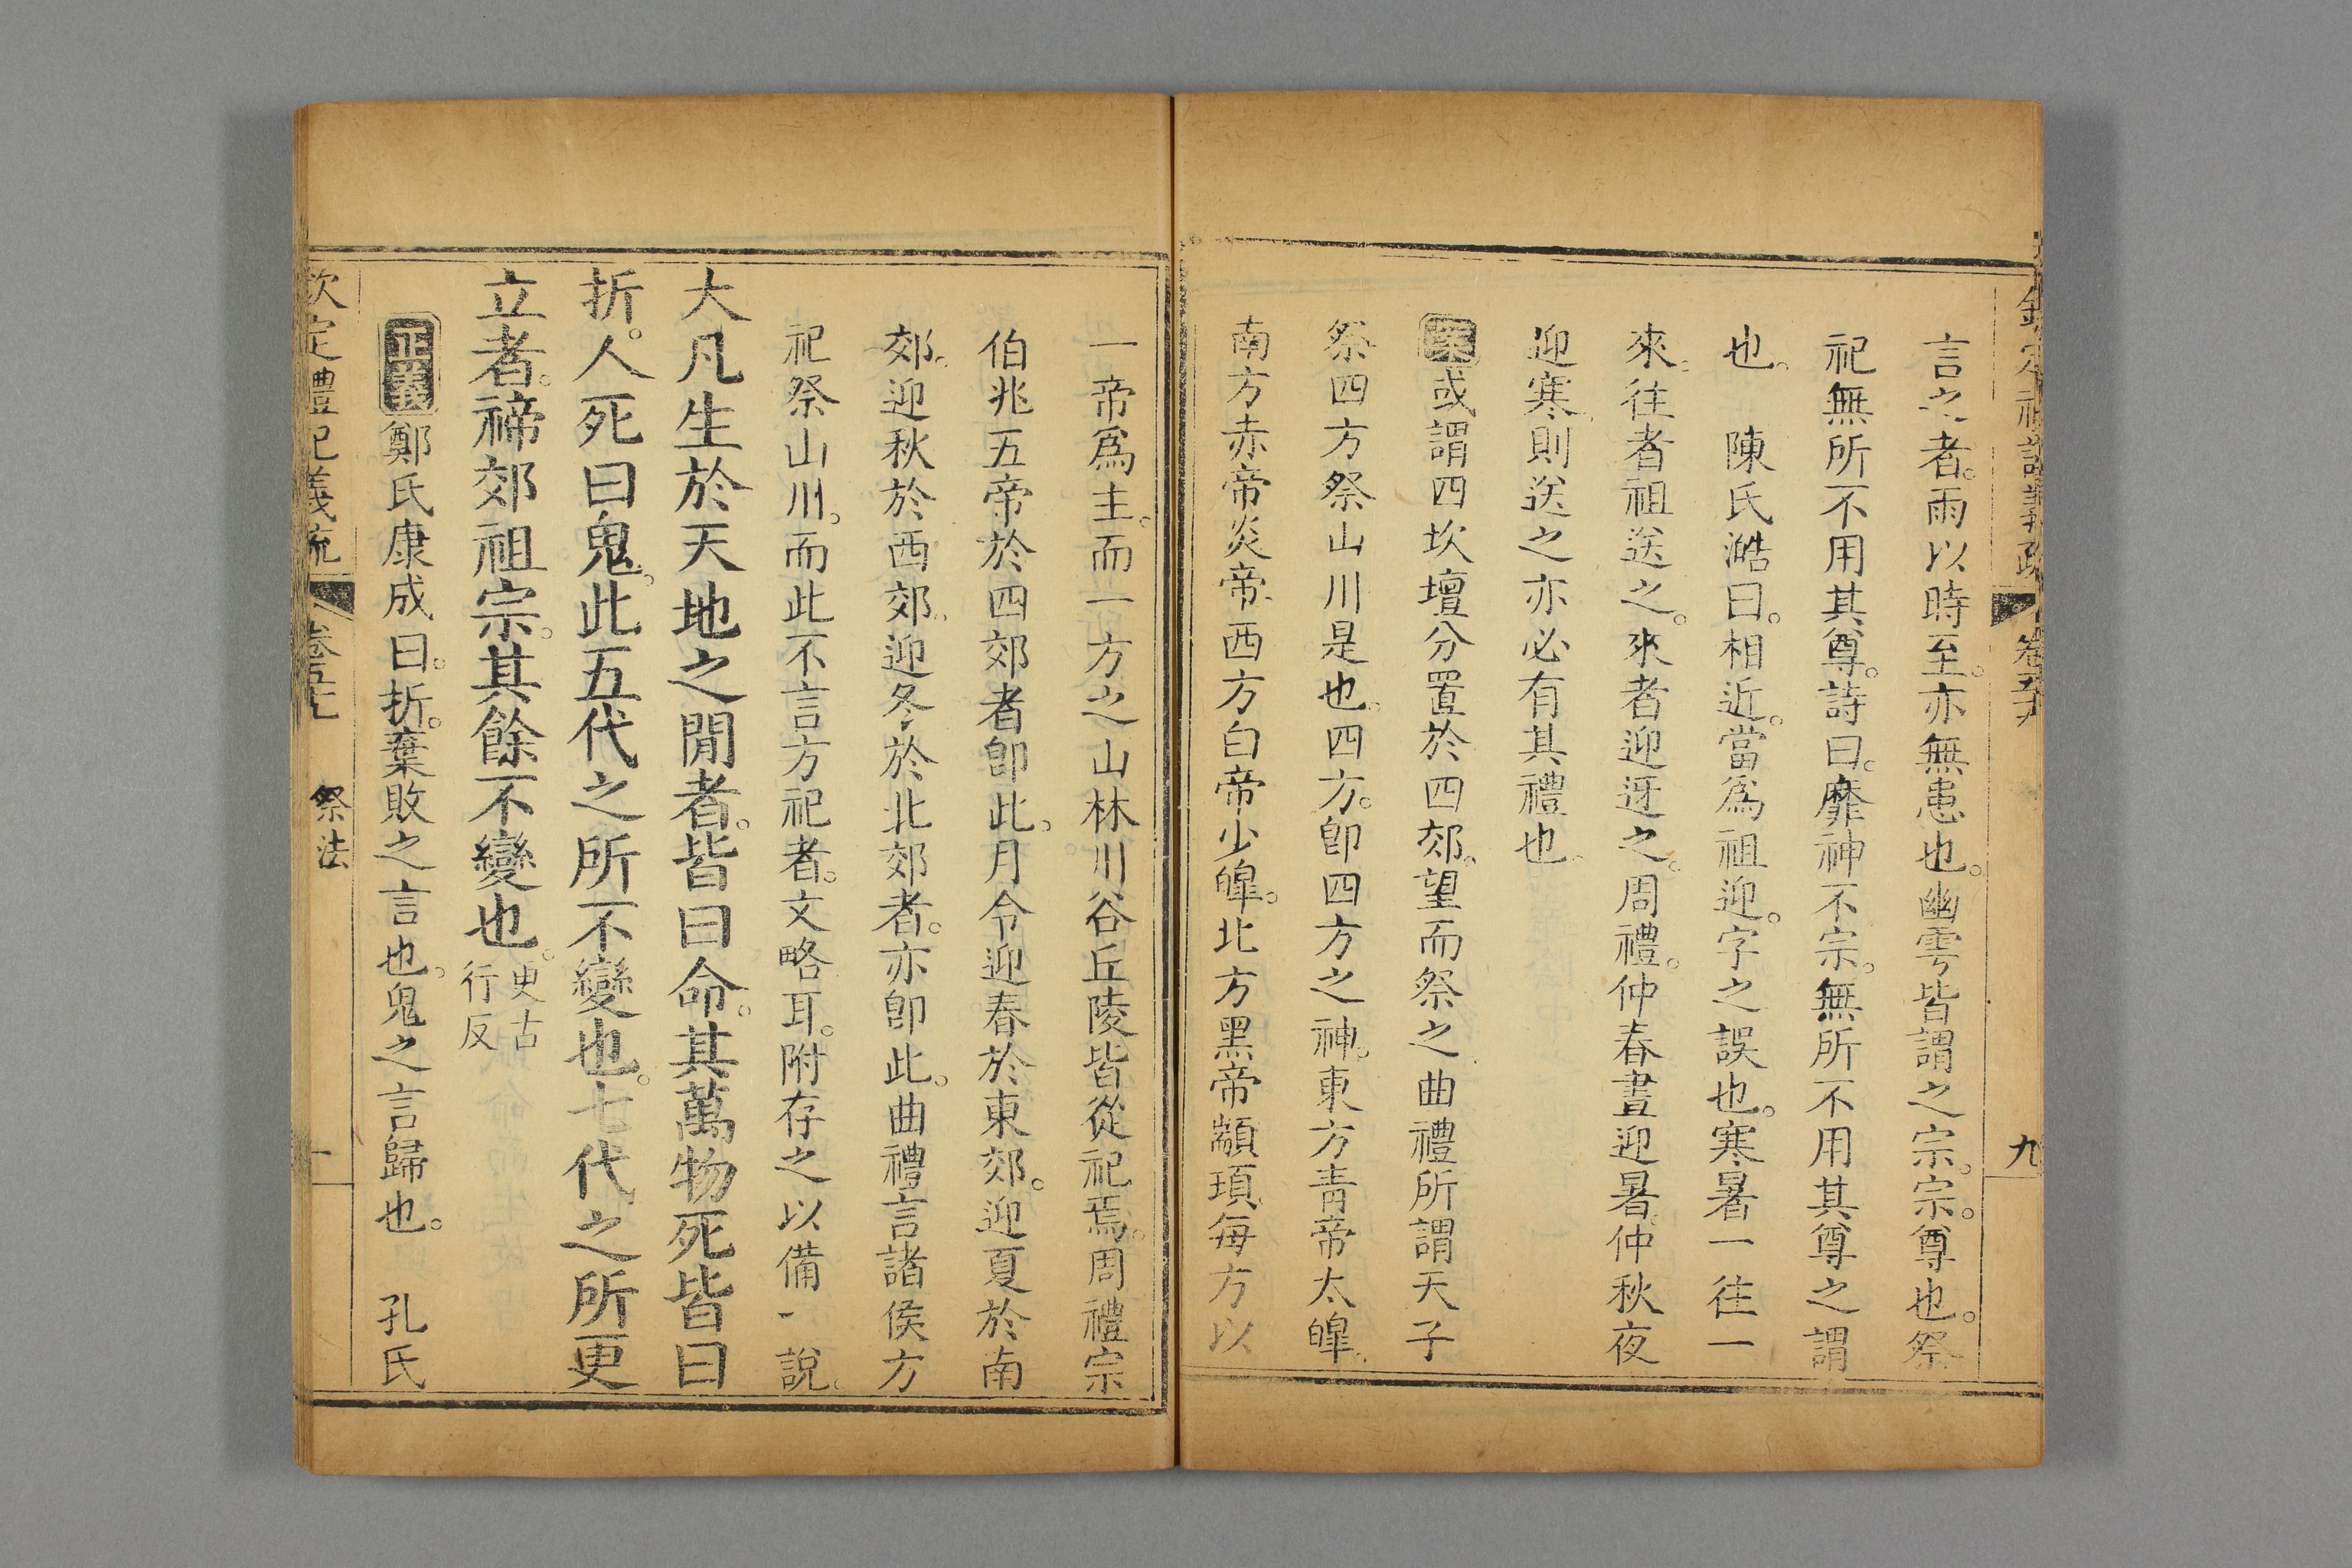 欽定禮記義疏 卷 九
言之者。雨以時至。亦無患也。幽雩皆謂之宗。宗。尊也。祭
祀無所不用其尊。詩曰。靡神不宗。無所不用其尊之謂
也。 陳氏澔曰。相近。當爲祖迎。字之誤也。寒暑一往一
來。往者祖送之。來者迎迓之。周禮。仲春晝迎暑。仲秋夜
迎寒。則送之亦必有其禮也。
案或謂四坎壇分置於四郊。望而祭之曲禮所謂天子
祭四方祭山川是也。四方。卽四方之神。東方靑帝太皥。
南方赤帝炎帝。西方白帝少皥。北方黑帝顓頊。每方以
一帝爲主。而一方之山林川谷丘陵皆從祀焉。周禮宗
伯兆五帝於四郊者卽此。月令迎春於東郊。迎夏於南
郊。迎秋於西郊。迎冬於北郊者。亦卽此。曲禮言諸侯方
祀祭山川。而此不言方祀者。文略耳。附存之以備一說。
大凡生於天地之閒者。皆曰命。其萬物死皆曰
折。人死曰鬼。此五代之所不變也。七代之所更
立者。禘郊祖宗。其餘不變也。更古行反
正義鄭氏康成曰。折。棄敗之言也。鬼之言歸也。 孔氏
欽定禮記義疏 卷五十七 祭法